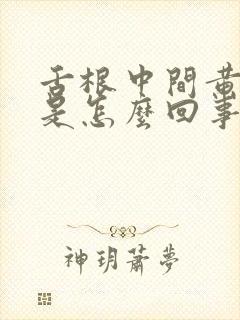 舌根中間黃
是怎麼回事
神玥蕭夢